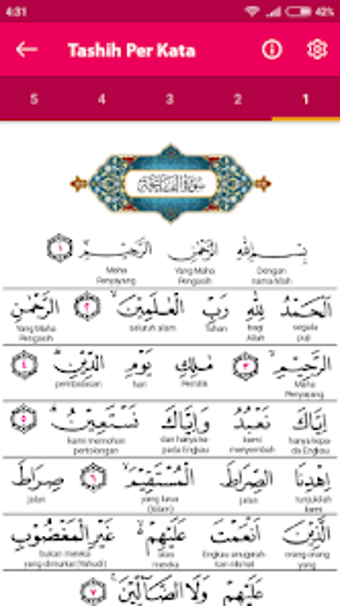 4:31 42%
Tashih Per Kata
5 4 3 2 1
سورة الفاتحة
بِسْمِ اللّٰهِ الرَّحْمٰنِ الرَّحِيْمِ ١
Dengan nama Allah Yang Maha Pengasih Maha Penyayang
اَلْحَمْدُ لِلّٰهِ رَبِّ الْعٰلَمِيْنَۙ ٢ الرَّحْمٰنِ
segala puji bagi Allah Tuhan seluruh alam Yang Maha Pengasih
الرَّحِيْمِۙ ٣ مٰلِكِ يَوْمِ الدِّيْنِۗ ٤
Maha Penyayang Pemilik hari pembalasan
اِيَّاكَ نَعْبُدُ وَاِيَّاكَ نَسْتَعِيْنُۗ ٥
hanya kepada Engkau kami menyembah dan hanya kepada Engkau kami memohon pertolongan
اِهْدِنَا الصِّرَاطَ الْمُسْتَقِيْمَۙ ٦ صِرَاطَ
tunjukilah kami jalan yang lurus (Islam) jalan
الَّذِيْنَ اَنْعَمْتَ عَلَيْهِمْ ەۙ غَيْرِ الْمَغْضُوْبِ
orang-orang yang Engkau anugerahkan nikmat atas mereka bukan mereka yang dimurkai (Yahudi)
عَلَيْهِمْ وَلَا الضَّاۤلِّيْنَ ٧